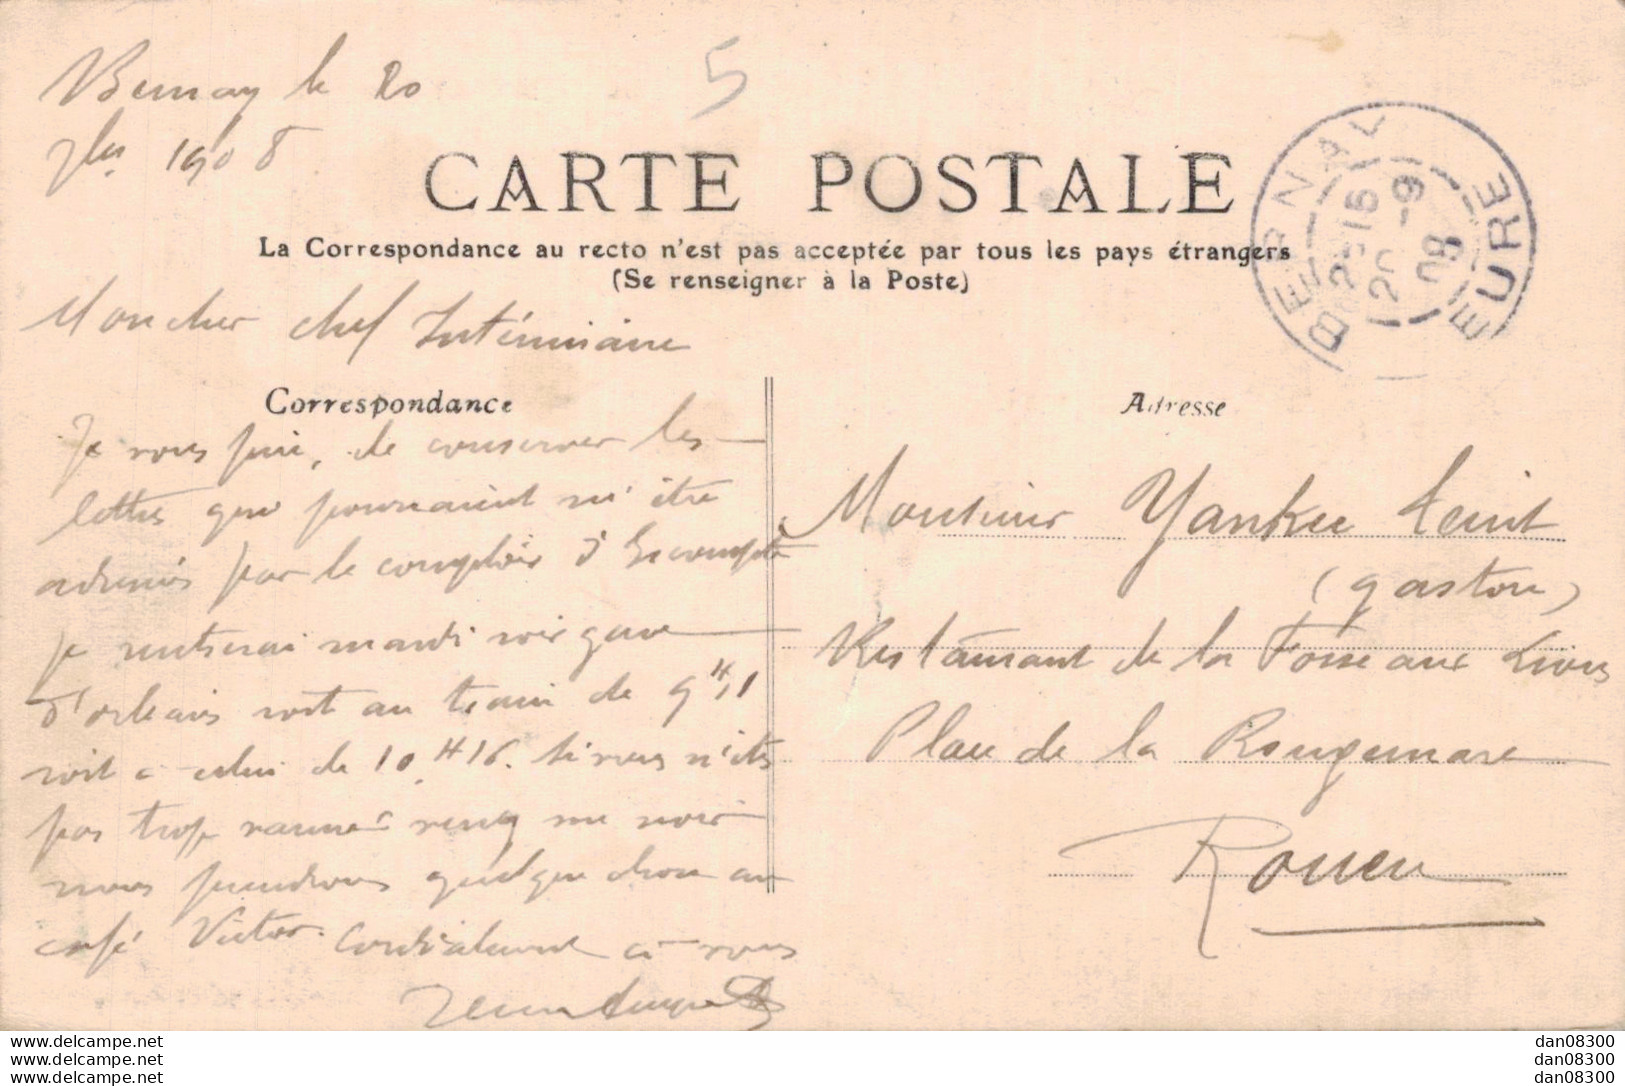 Bernay le 20
7bre 1908
5
CARTE POSTALE
La Correspondance au recto n'est pas acceptée par tous les pays étrangers
(Se renseigner à la Poste)
BERNAY
2-15
20 -9
08
EURE
Mon cher chef Intérimaire
Correspondance
Je vous prie, de conserver les
lettres que pourraient m'être
adressées par le comptoir d'Escompte
je rentrerai mardi soir gare
d'orléans soit au train de 9H,1
soit à celui de 10H16. Si vous n'êtes
pas trop venez me voir
nous prendrons quelque chose au
café Victor. Cordialement à vous
Adresse
Monsieur Yankee
(gaston)
Restaurant de la Fosse aux Lions
Place de la Rougemare
Rouen
www.delcampe.net
www.delcampe.net
www.delcampe.net
dan08300
dan08300
dan08300